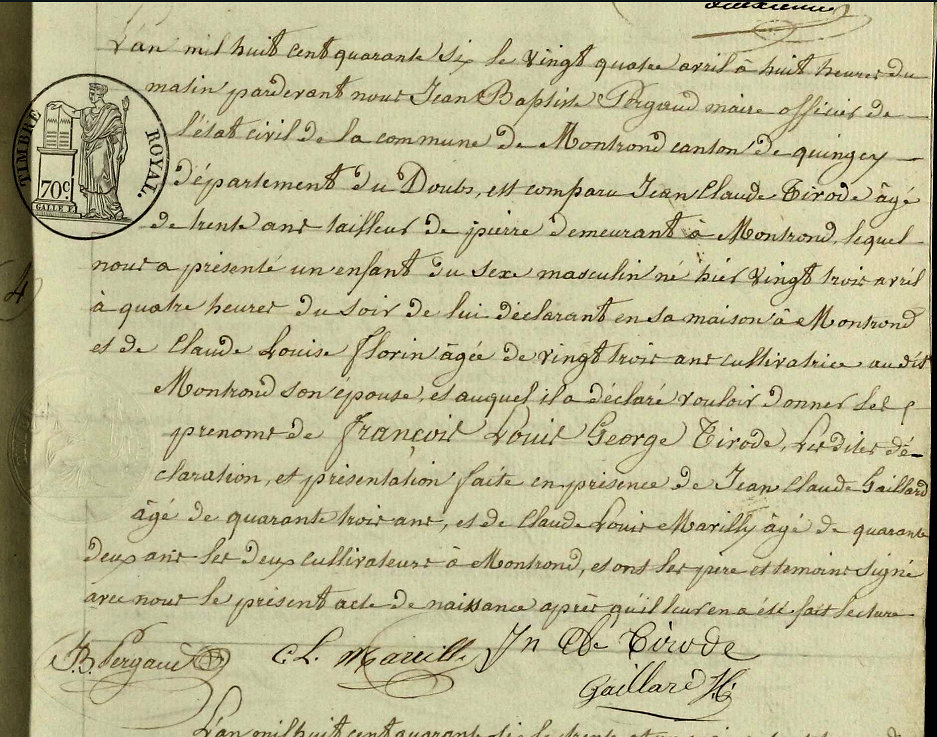 L'an mil huit cent quarante six le vingt quatre avril à huit heures du
matin pardevant nous Jean Baptiste Pergaud maire officier de
l'état civil de la commune de Montrond canton de quingey
département du Doubs, est comparu Jean Claude Tirode âgé
de trente ans tailleur de pierre demeurant à Montrond, lequel
nous a présenté un enfant du sexe masculin né hier vingt trois avril
à quatre heures du soir de lui déclarant en sa maison à Montrond
et de Claude Louise Florin âgée de vingt trois ans cultivatrice au dit
Montrond son épouse, et auquel il a déclaré vouloir donner les
prenoms de François Louis George Tirode, Lesdites dé-
claration, et présentation faite en présence de Jean Claude Gaillard
âgé de quarante trois ans, et de Claude Louis Marilly âgé de quarante
deux ans les deux cultivateurs à Montrond, et ont les pere et temoins signé
avec nous le présent acte de naissance après qu'il leur en a été fait lecture
JB Pergaud C. L. Mareille Jn Cle Tirode
Gaillard
TIMBRE ROYAL.
70c.
L'an mil huit cent quarante six le trente